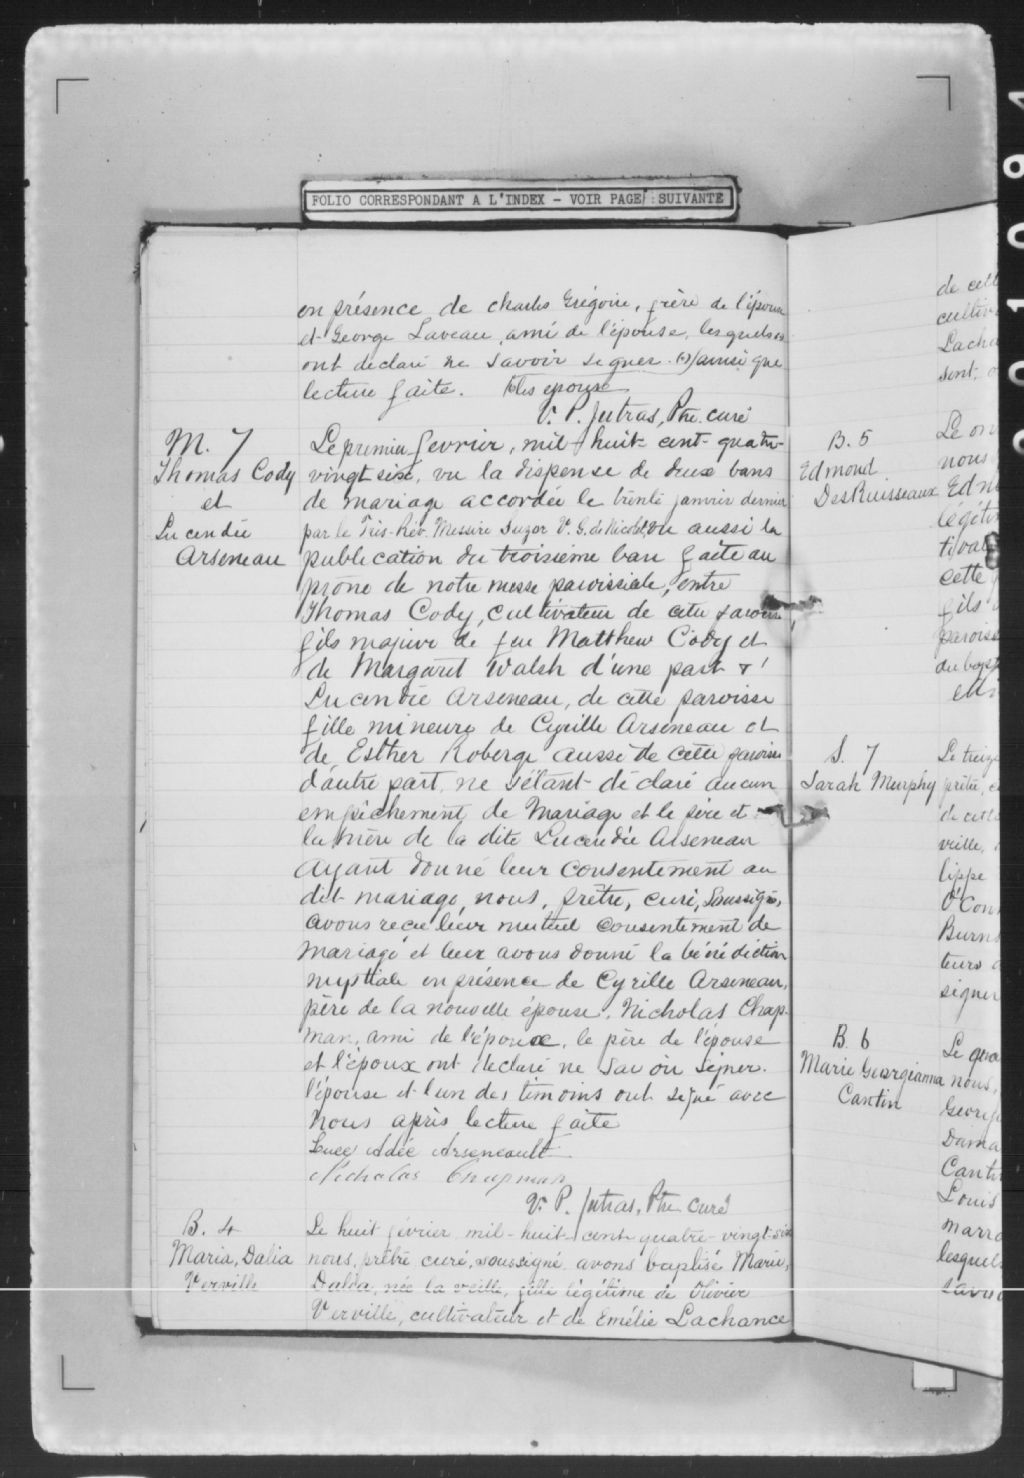 FOLIO CORRESPONDANT A L'INDEX - VOIR PAGE SUIVANTE
en présence de Charles Grégoire, frère de l'époux
et George Laveau, ami de l'épouse, lesquels
ont déclaré ne savoir signer (+) ainsi que
lecture faite. les époux
V. P. Jutras, Ptre curé
M. 7
Thomas Cody
et
Lucendie
Arseneau
Le premier fevrier, mil huit cent quatre
vingt six, vu la dispense de deux bans
de mariage accordée le trente janvier dernier
par le Très Rév. Messire Suzor V. G. de Nicolet, vu aussi la
publication du troisième ban faite au
prône de notre messe paroissiale, entre
Thomas Cody, cultivateur de cette paroisse,
fils majeur de feu Matthew Cody et
de Margaret Walsh d'une part &
Lucendie Arseneau, de cette paroisse
fille mineure de Cyrille Arseneau et
de Esther Roberge aussi de cette paroisse
d'autre part, ne s'étant déclaré aucun
empêchement de Mariage et le père et
la mère de la dite Lucendie Arseneau
ayant donné leur consentement au
dit mariage, nous, prêtre, curé, soussigné,
avons reçu leur mutuel consentement de
mariage et leur avons donné la bénédiction
nuptiale en présence de Cyrille Arseneau,
père de la nouvelle épouse, Nicholas Chap-
man, ami de l'époux, le père de l'épouse
et l'époux ont déclaré ne savoir signer.
l'épouse et l'un des témoins ont signé avec
nous après lecture faite
Luce Adée Arseneault
Nicholas Chapman
V. P. Jutras, Ptre curé
B. 4
Maria, Dalia
Verville
Le huit février mil-huit-cent-quatre-vingt-six
nous, prêtre curé, soussigné avons baptisé Marie,
Dalda, née la veille, fille légitime de Olivier
Verville, cultivateur et de Emélie Lachance
de cett
cultiv
Lacha
sent,
B. 5
Edmond
DesRuisseaux
Le on
nous
Edm
légitim
tivat
cette
fils
paroiss
du bapt
S. 7
Sarah Murphy
Le treize
prêtre, c
de cette
ville,
lippe
O'Con
Burns
teurs
signer
B. 6
Marie Georgianna
Cantin
Le qua
nous,
George
Dama
Canti
Louis
marra
lesquels
savoi